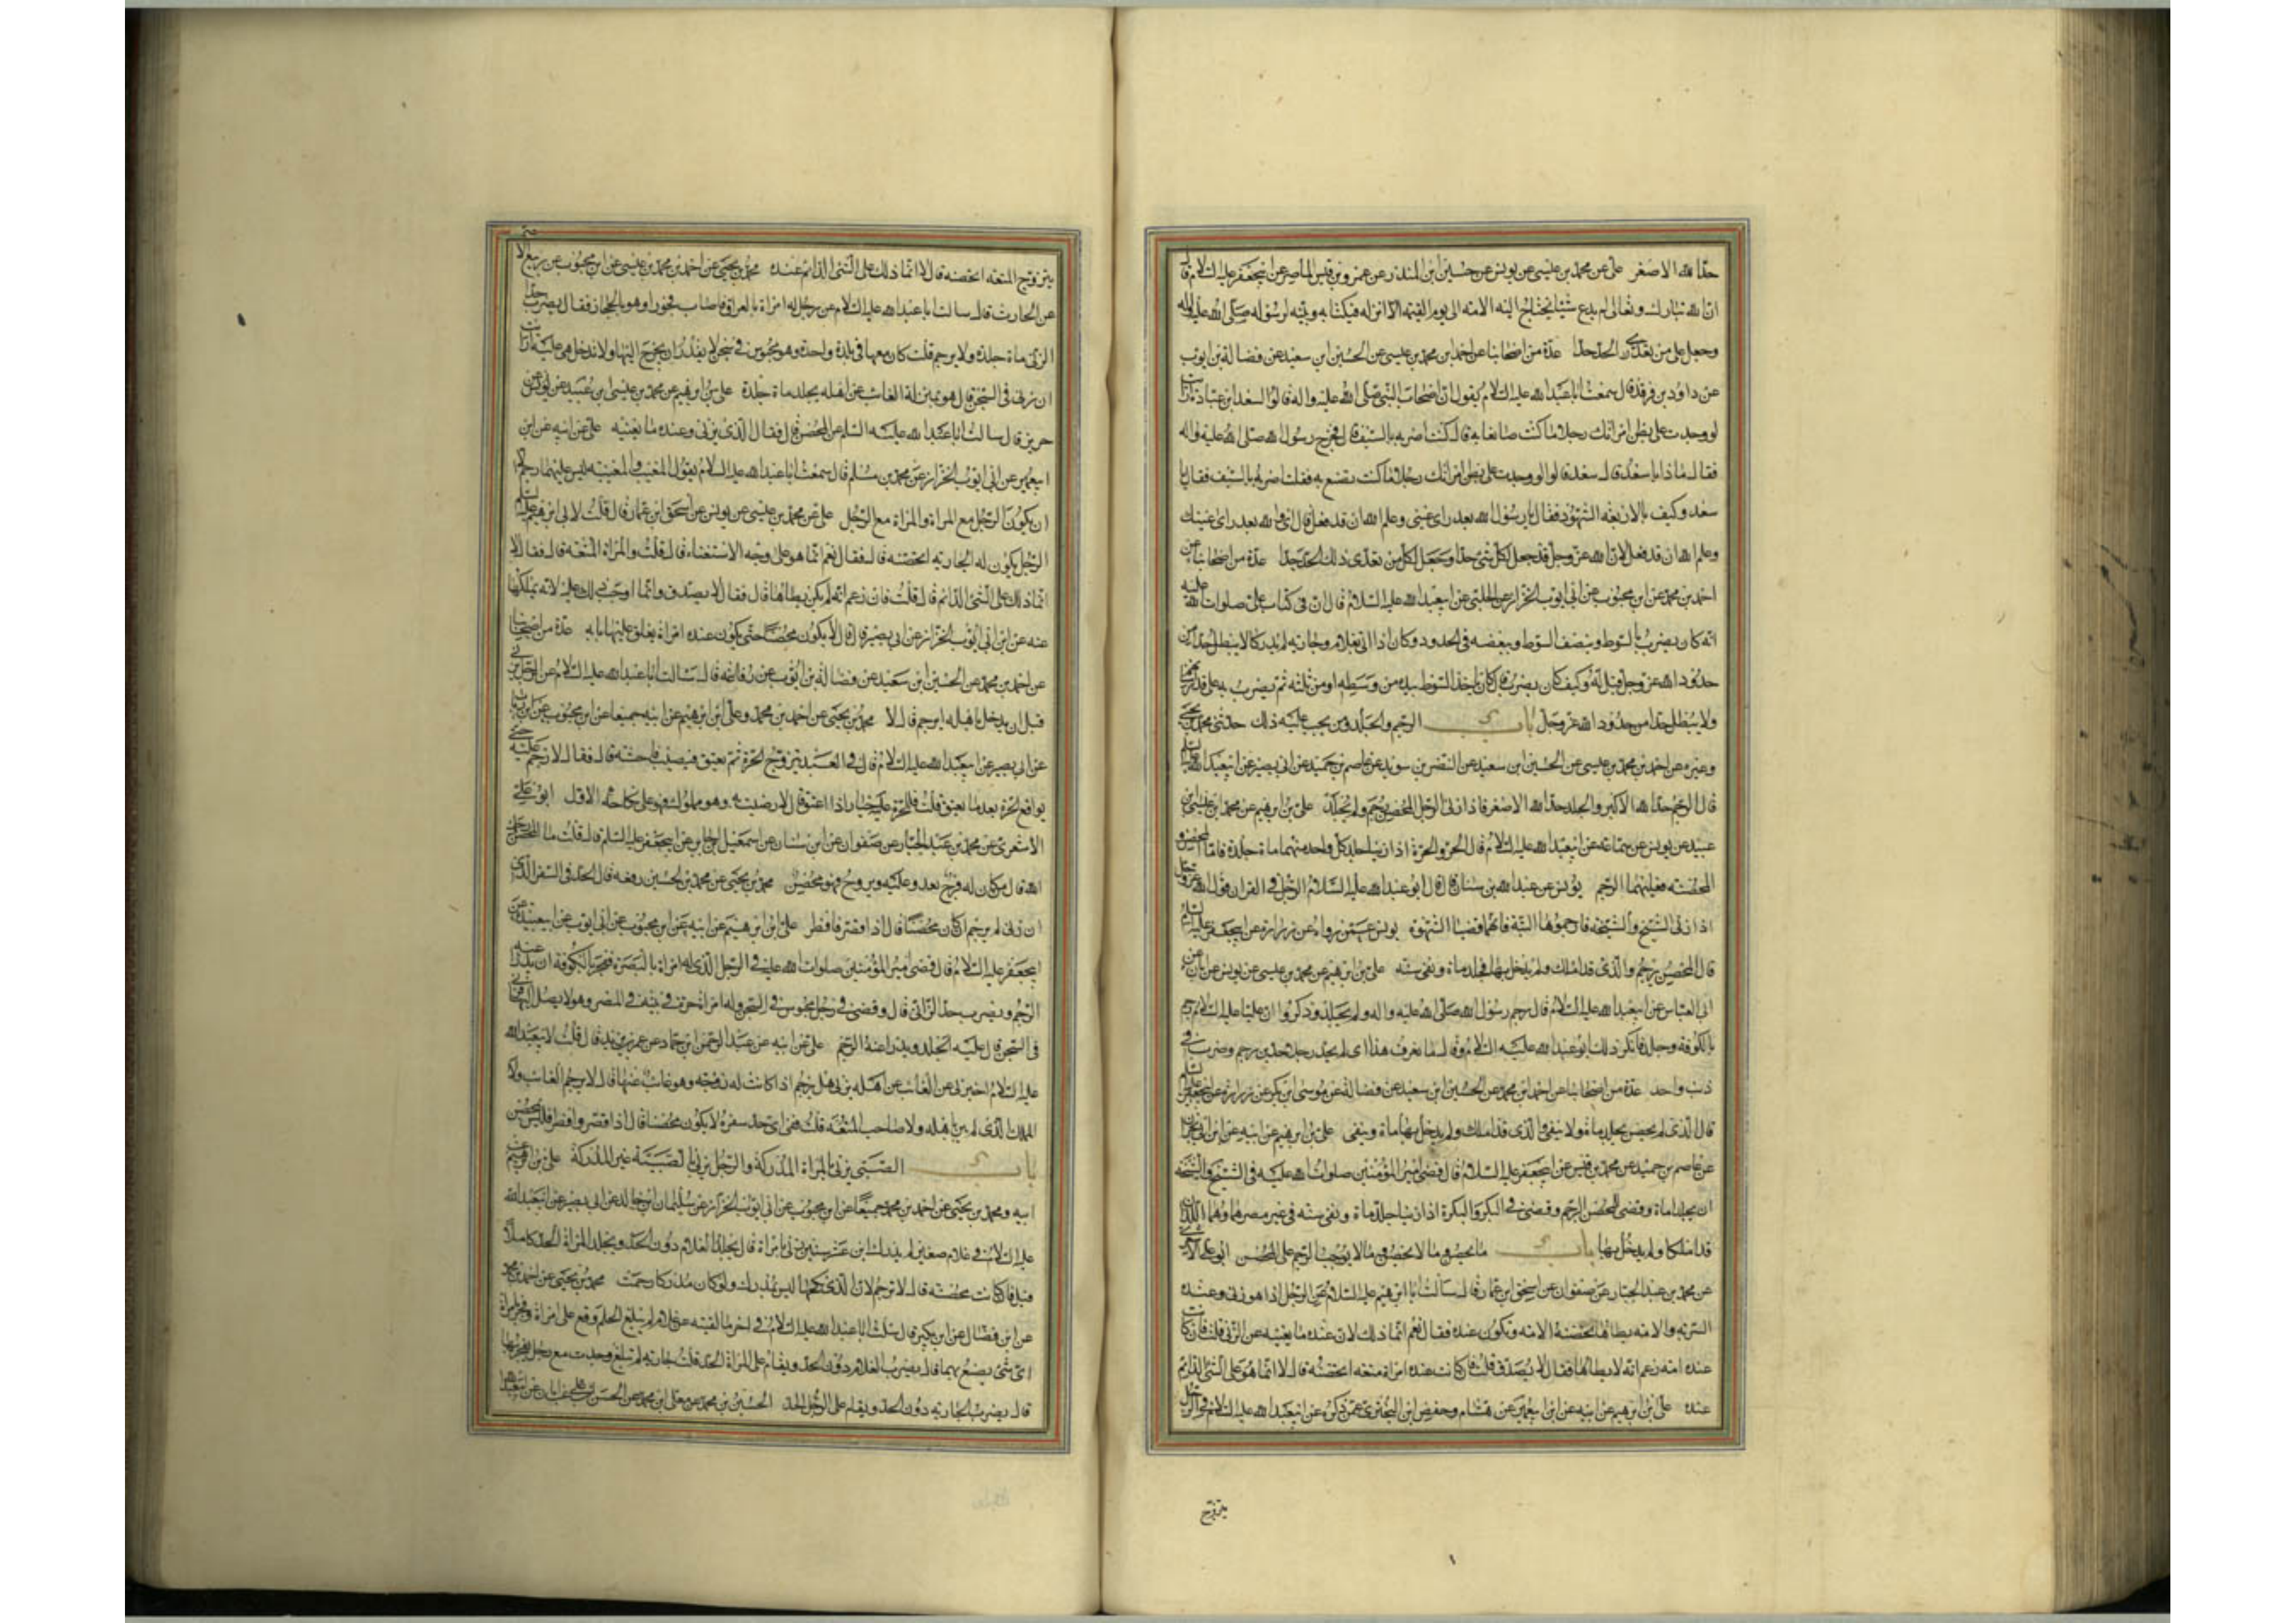 حدّا لله الاصغر علی عن محمد بن عیسی عن یونس عن حسین ابن المنذر عن عمرو بن قیس الماصر عن ابیجعفر علیه السلام قال
ان الله تبارک وتعالی لم یدع شیئا یحتاج الیه الامه الی یوم القیمه الا انزله فی کتابه وبیّنه لرسوله صلّی الله علیه واله
وجعل علی من تعدّی الحدّ حدّا عدّة من اصحابنا عن احمد ابن محمد بن عیسی عن الحسین ابن سعید عن فضالة بن ایوب
عن داود بن فرقد قال سمعت اباعبدالله علیه السلام یقول ان اصحاب النبی صلّی الله علیه واله قالوا لسعد ابن عباده ارایت
لو وجدت علی بطن امراتک رجلا ما کنت صانعا به قال کنت اضربه بالسیف قال فخرج رسول الله صلی الله علیه واله
فقال ماذا یا سعد قال سعد قالوا لو وجدت علی بطن امراتک رجلا ما کنت تصنع به فقلت اضربه بالسیف فقال یا
سعد وکیف بالاربعه الشهود فقال یا رسول الله بعد رای عینی وعلم الله ان قد فعل قال ای والله بعد رای عینک
وعلم الله ان قد فعل لان الله عزّ وجلّ قد جعل لکلّ شئ حدّا وجعل لکل من تعدّی ذلک الحدّ حدّا عدّة من اصحابنا عن
احمد بن محمد عن ابن محبوب عن ابی ایوب الخزاز عن الحلبی عن ابیعبدالله علیه السّلام قال ان فی کتاب علیّ صلوات الله علیه
انه کان یضرب بالسوط وبنصف السوط وببعضه فی الحدود وکان اذا اتی بغلام وجاریه لم یدرکا لا یبطل حدّا من
حدود الله عزّ وجل قیل له وکیف کان یضرب قال کان یاخذ السوط بیده من وسطه او من ثلثه ثم یضرب به علی قدر اسنانهم
ولا یبطل حدا من حدود الله عز وجلّ باب الرجم والجلد ومن یجب علیه ذلک حدثنی محمد بن یحیی
وغیره عن احمد بن محمد بن عیسی عن الحسین ابن سعید عن النضر بن سوید عن عاصم بن حمید عن ابی بصیر عن ابیعبدالله علیه السلام
قال الرجم حدّ الله الاکبر والجلد حدّ الله الاصغر فاذا زنی الرجل المحصن رجم ولم یجلد علیّ بن ابرهیم عن محمد بن عیسی ابن
عبید عن یونس عن سماعة عن ابیعبدالله علیه السلام قال الحر والحرة اذا زنیا جلد کل واحد منهما ماة جلدة فاما المحصن و
المحصنه فعلیهما الرجم یونس عن عبدالله بن سنان قال قال ابو عبدالله علیه السّلام الرجم فی القران قول الله عزوجل
اذا زنی الشیخ والشیخة فارجموهما البتة فانهما قضیا الشهوة یونس عمّن رواه عن زرارة عن ابیجعفر علیه السلام
قال المحصن یرجم والذی قد املک ولم یدخل بها فجلد ماة ونفی سنه علی بن ابرهیم عن محمد بن عیسی عن یونس عن ابان عن
ابی العباس عن ابیعبدالله علیه السلام قال رجم رسول الله صلّی الله علیه واله ولم یجلد وذکروا ان علیا علیه السلام رجم
بالکوفة وجلد فانکر ذلک ابو عبدالله علیه السلام وقال ما نعرف هذا ای لم یحد رجل حدین رجم وضرب فی
ذنب واحد عدّة من اصحابنا عن احمد ابن محمد عن الحسین ابن سعید عن فضالة عن موسی ابن بکر عن زرارة عن ابیجعفر علیه السلم
قال الذی لم یحصن یجلد ماة ولا ینفی والذی قد املک ولم یدخل بها ماة وینفی علی بن ابرهیم عن ابیه عن ابن ابی نجران
عن عاصم بن حمید عن محمد بن قیس عن ابیجعفر علیه السلام قال قضی امیر المؤمنین صلوات الله علیه فی الشیخ والشیخة
ان یجلدا ماة وقضی للمحصن الرجم وقضی فی البکر والبکرة اذا زنیا جلد ماة ونفی سنه فی غیر مصرهما وهما اللذان
قد املکا ولم یدخل بها باب ما یحصن وما لا یحصن وما لا یوجب الرجم علی المحصن ابو علی الاشعری
عن محمد بن عبد الجبّار عن صفوان عن اسحق ابن عمار قال سالت ابا ابرهیم علیه السلام عن الرجل اذا هو زنی وعنده
السریه والامه یطاها تحصنه الامه وتکون عنده فقال نعم انما ذلک لان عنده ما یغنیه عن الزنی قلت فان کانت
عنده امة زعم انه لا یطاها فقال لا یصدّق قلت فان کانت عنده امراة متعه اتحصنه قال لا انما هو علی الشئ الدائم
عنده علی بن ابرهیم عن ابیه عن ابن ابیعمیر عن هشام وحفص ابن البختری عمّن ذکره عن ابیعبدالله علیه السلام فی الرجل
یتزوج
یتزوج المتعه اتحصنه قال لا انما ذلک علی الشئ الدائم عنده محمد بن یحیی عن احمد بن محمد بن عیسی عن ابن محبوب عن ربیع الاصم
عن الحارث قال سالت اباعبدالله علیه السلام عن رجل له امراة بالعراق فاصاب فجورا وهو بالحجاز فقال یضرب حدّ
الزنی ماة جلدة ولا یرجم قلت کان معها فی بلدة واحدة وهو محبوس فی سجن لا یقدر ان یخرج الیها ولا تدخل هی علیه ارایت
ان زنی فی السّجن قال هو بمنزلة الغائب عن اهله یجلد ماة جلدة علی بن ابرهیم عن محمد بن عیسی ابن عبید عن یونس عن
حریز قال سالت اباعبدالله علیه السلم عن المحصن قال فقال الّذی یزنی وعنده ما یغنیه علی عن ابیه عن ابن
ابیعمیر عن ابی ایوب الخزاز عن محمد بن مسلم قال سمعت اباعبدالله علیه السلام یقول المغیب والمغیبه لیس علیهما رجم الا
ان یکون الرّجل مع المراة والمراة مع الرّجل علی عن محمد بن عیسی عن یونس عن اسحق ابن عمار قال قلت لابی ابرهیم علیه السلم
الرّجل یکون له الجاریه اتحصنه قال فقال نعم انما هو علی وجه الاستغناء قال قلت والمراة المتعه قال فقال لا
انما ذلک علی الشئ الدائم قال قلت فان زعم انه لم یکن یطاها قال فقال لا یصدّق وانما اوجب ذلک علیه لانه یملکها
عنه عن ابن ابی ایوب الخزاز عن ابی بصیر قال قال لا یکون محصنا حتی یکون عنده امراة یغلق علیها بابه عدّة من اصحابنا
عن احمد بن محمد عن الحسین ابن سعید عن فضالة بن ایوب عن رفاعه قال سالت اباعبدالله علیه السلام عن الرجل یزنی
قبل ان یدخل باهله ایرجم قال لا محمد بن یحیی عن احمد بن محمد وعلی ابن ابرهیم عن ابیه جمیعا عن ابن محبوب عن ابن رئاب
عن ابی بصیر عن ابیعبدالله علیه السلام قال فی العبد یتزوج الحرة ثم یعتق فیصیب فاحشه قال فقال لا رجم علیه حتی
یواقع الحرة بعد ما یعتق قلت فللحرة علیه خیار اذا اعتق قال لا رضیت به وهو مملوک فهو علی نکاحه الاول ابو علی
الاشعری عن محمد بن عبد الجبّار عن صفوان عن ابن سنان عن اسمعیل ابن جابر عن ابیجعفر علیه السلم قال قلت ما المحصن رحمک
الله قال من کان له فرج یغدو علیه ویروح فهو محصن محمد بن یحیی عن محمد بن الحسین رفعه قال الحدّ فی السفر الذی
ان زنی لم یرجم ان کان محصنا قال اذا قصر فافطر علی ابن ابرهیم عن ابیه عن ابن محبوب عن ابی ایوب عن ابیعبیده عن
ابیجعفر علیه السلام قال قضی امیر المؤمنین صلوات الله علیه فی الرجل الذی له امراة بالبصرة ففجر بالکوفة ان یدرأ عنه
الرجم ویضرب حدّ الزانی قال وقضی فی رجل محبوس فی السّجن وله امراة حرة فی بیته فی المصر وهو لا یصل الیها فزنی
فی السّجن قال علیه الجلد ویدرا عنه الرجم علی عن ابیه عن عبد الرحمن ابن حماد عن عمر بن یزید قال قلت لابیعبدالله
علیه السلام اخبرنی عن الغائب عن اهله یزنی هل یرجم اذا کانت له زوجه وهو غائب عنها قال لا یرجم الغائب ولا
المملک الذی لم یبن باهله ولا صاحب المتعه قلت ففی ای حد سفره لا یکون محصنا قال اذا قصر وافطر فلیس بمحصن
باب الصّبی یزنی بالمراة المدرکة والرجل یزنی بالصّبیّة غیر المدرکة علی بن ابرهیم عن
ابیه ومحمد بن یحیی عن احمد بن محمد جمیعا عن ابن محبوب عن ابی ایوب الخزاز عن سلیمان ابن خالد عن ابی بصیر عن ابیعبدالله
علیه السلام فی غلام صغیر لم یدرک ابن عشر سنین زنی بامراة قال یجلد الغلام دون الحدّ وتجلد المراة الحدّ کاملا
قیل فان کانت محصنه قال لا ترجم لان الذی نکحها لیس بمدرک ولو کان مدرکا رجمت محمد بن یحیی عن احمد بن محمد
عن ابن فضّال عن ابن بکیر قال سالت اباعبدالله علیه السلام فی اخر ما لقیته عن غلام لم یبلغ الحلم وقع علی امراة وفجر بامراة
ای شئ یصنع بهما قال یضرب الغلام دون الحدّ ویقام علی المراة الحدّ قلت جاریه لم تبلغ وجدت مع رجل یفجر بها
قال یضرب الجاریه دون الحدّ ویقام علی الرّجل الحدّ الحسین بن محمد عن معلی ابن محمد عن الحسن بن علی عن ابان عن ابیعبدالله